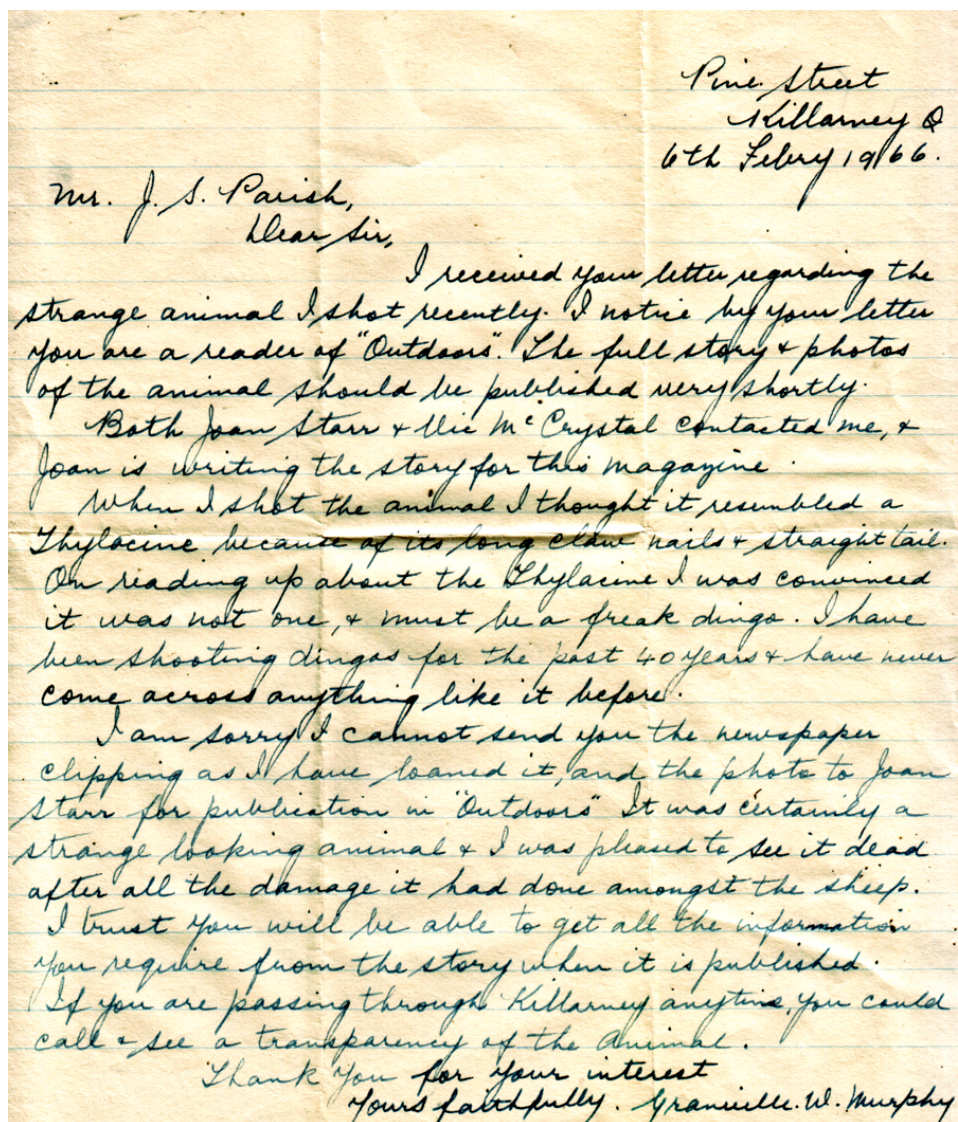 Pine Street
Killarney Q
6th Febry 1966.
Mr. J. S. Parish,
Dear Sir,
I received your letter regarding the
strange animal I shot recently. I notice by your letter
you are a reader of "Outdoors". The full story & photos
of the animal should be published very shortly.
Both Joan Starr & Vic McCrystal contacted me, &
Joan is writing the story for this magazine.
When I shot the animal I thought it resembled a
Thylacine because of its long claw nails & straight tail.
On reading up about the Thylacine I was convinced
it was not one, & must be a freak dingo. I have
been shooting dingos for the past 40 years & have never
come across anything like it before.
I am sorry I cannot send you the newspaper
clipping as I have loaned it, and the photo to Joan
Starr for publication in "Outdoors" It was certainly a
strange looking animal & I was pleased to see it dead
after all the damage it had done amongst the sheep.
I trust you will be able to get all the information
you require from the story when it is published.
If you are passing through Killarney anytime, you could
call & see a transparency of the animal.
Thank you for your interest
Yours faithfully. Granville. W. Murphy